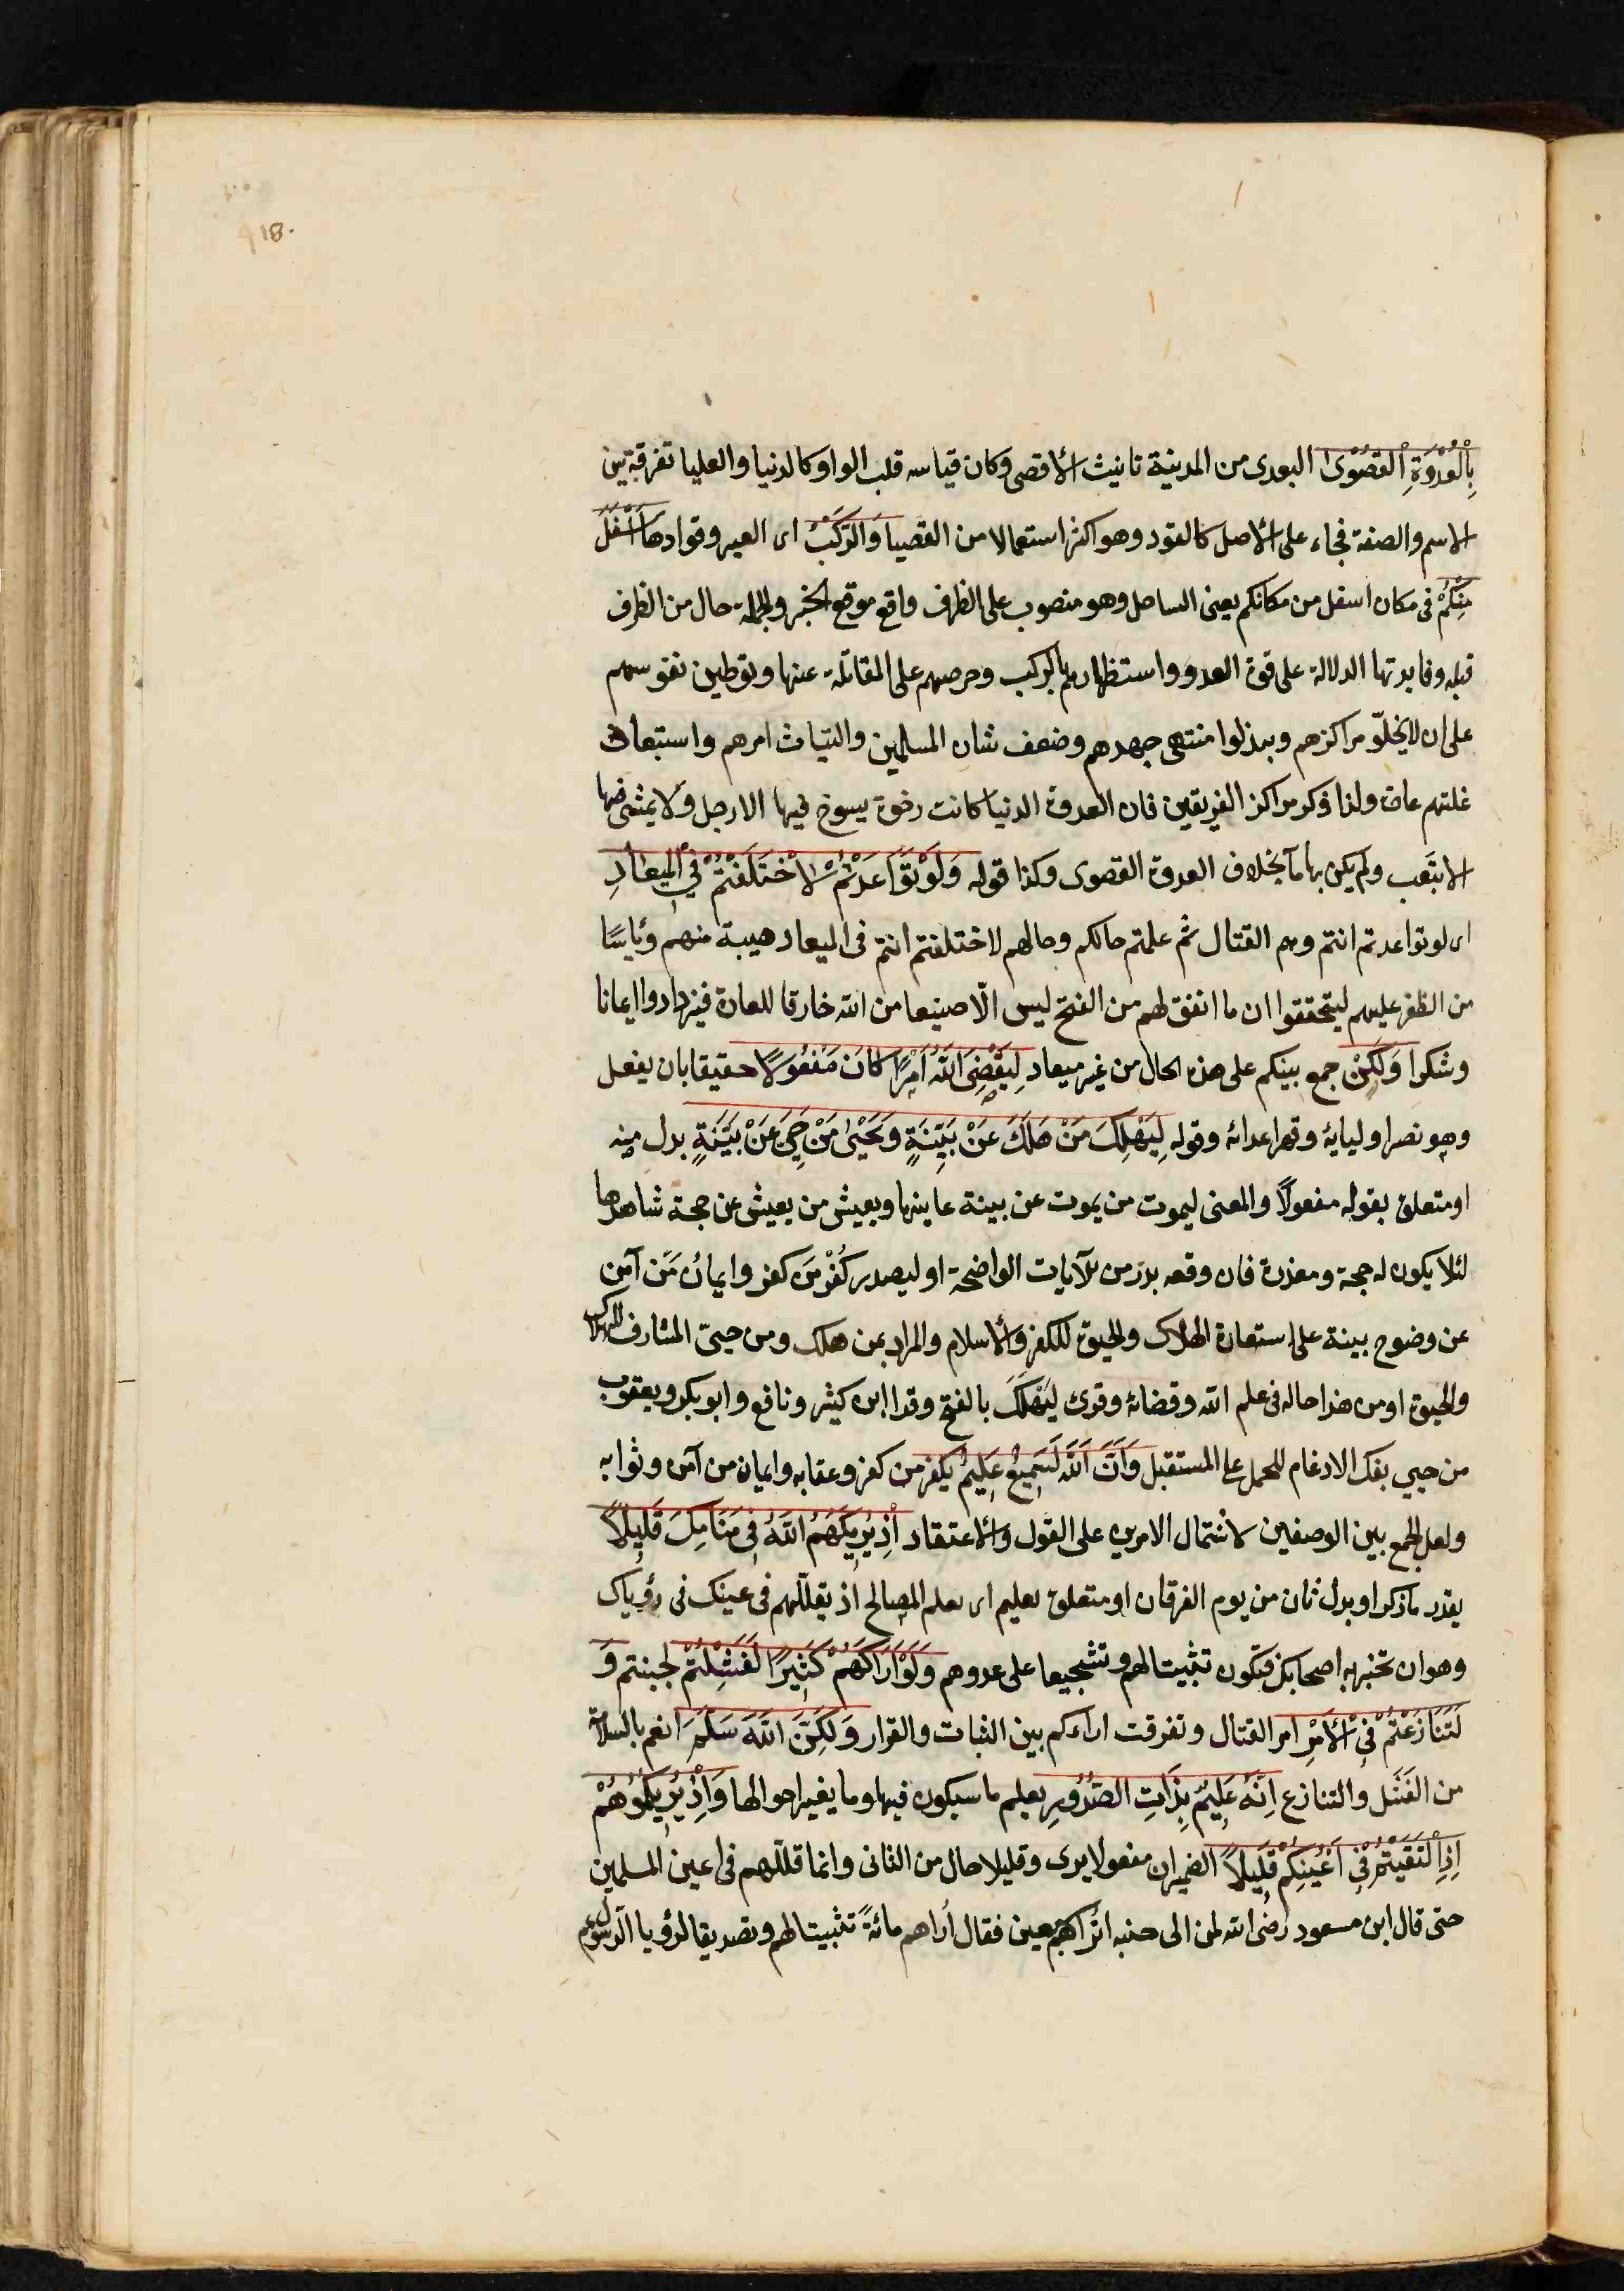 918.
بِالْعُدْوَةِ الْقُصْوٰى البعدى من المدينة تانيث الأقصى وكان قياسه قلب الواو كالدنيا والعليا تفرقة بين
الاسم والصفة فجاء على الأصل كالقود وهو اكثر استعمالا من القصيا وَالرَّكْبُ اى العير وقوادها أَسْفَلَ
مِنْكُمْ فى مكان اسفل من مكانكم يعنى الساحل وهو منصوب على الظرف واقع موقع الخبر والجملة حال من الظرف
قبله وفايدتها الدلالة على قوة العدو واستظهارهم بالركب وحرصهم على المقاتلة عنها وتوطين نفوسهم
على ان لا يخلّو مراكزهم ويبذلوا منتهى جهدهم وضعف شان المسلمين والتياث امرهم واستبعاد
غلبتهم عادة ولذا ذكر مراكز الفريقين فان العدوة الدنيا كانت رخوة يسوخ فيها الارجل ولا يمشى فيها
الا بتعب ولم يكن بها مآ بخلاف العدوة القصوى وكذا قوله وَلَوْ تَوَاعَدْتُمْ لَاخْتَلَفْتُمْ فِي الْمِيعَادِ
اى لو تواعدتم انتم وهم القتال ثم علمتم حالكم وحالهم لاختلفتم انتم فى الميعاد هيبة منهم ويأسًا
من الظفر عليهم ليتحققوا ان ما اتفق لهم من الفتح ليس الّا صنيعا من الله خارقا للعادة فيزدادوا ايمانا
وشكرا وَلَكِنْ جمع بينكم على هذه الحال من غير ميعاد لِيَقْضِىَ اللّهُ اَمْرًا كَانَ مَفْعُولًا حقيقا بان يفعل
وهو نصر اوليايهٔ وقهر اعدائهٔ وقوله لِيَهْلِكَ مَنْ هَلَكَ عَنْ بَيِّنَةٍ وَيَحْيٰى مَنْ حَيَّ عَنْ بَيِّنَةٍ بدل منه
او متعلق بقوله مفعولًا والمعنى ليموت من يموت عن بينة عاينها ويعيش من يعيش عن حجة شاهدها
لئلا يكون له حجة ومعذرة فان وقعه بدر من الآيات الواضحة او ليصدر كُفْر مَن كفر وايمانُ مَن آمن
عن وضوح بينة على استعارة الهلاك والحيوة للكفر والاسلام والمراد بمن هلك ومن حيىّ المشارف للهلاك
والحيوة او من هذا حاله فى علم الله وقضائهٔ وقرئ ليَهلَكَ بالفتح وقرا ابن كثير ونافع وابو بكر ويعقوب
من حيي بفك الادغام للحمل على المستقبل وَاَنَّ اللّهَ لَسَمِيعٌ عَلِيمٌ بكفر من كفر وعقابه وايمان من آمن وثوابه
ولعل الجمع بين الوصفين لاشتمال الامرين على القول والاعتقاد اِذْ يُرِيكَهُمُ اللّهُ فِى مَنَامِكَ قَلِيلًا
يقدر باذكر او بدل ثان من يوم الفرقان او متعلق بعليم اى يعلم المصالح اذ يقلّلهم فى عينك فى رؤياك
وهو ان تخبر به اصحابك فيكون تثبيتا لهم وتشجيعا على عدوهم وَلَوْ اَرَاكَهُمْ كَثِيرًا لَفَشِلْتُمْ لجبنتم وَ
لَتَنَازَعْتُمْ فِي الْأَمْرِ امر القتال وتفرقت اراءكم بين الثبات والقرار وَلَكِنَّ اللّهَ سَلَّمَ انعم بالسلامة
من الفَشَل والتنازع اِنَّهُ عَلِيمٌ بِذَاتِ الصُّدُورِ يعلم ما سيكون فيها وما يغير احوالها وَاِذْ يُرِيكُمُوهُمْ
اِذِ الْتَقَيْتُمْ فِي اَعْيُنِكُمْ قَلِيلًا الضميران مفعولا يرى وقليلا حال من الثانى وانما قلّلهم فى اعين المسلمين
حتى قال ابن مسعود رضى الله لمن الى جنبه اتراهم سبعين فقال أراهم مائةً تثبيتا لهم وتصديقا لرؤيا الرسول عم